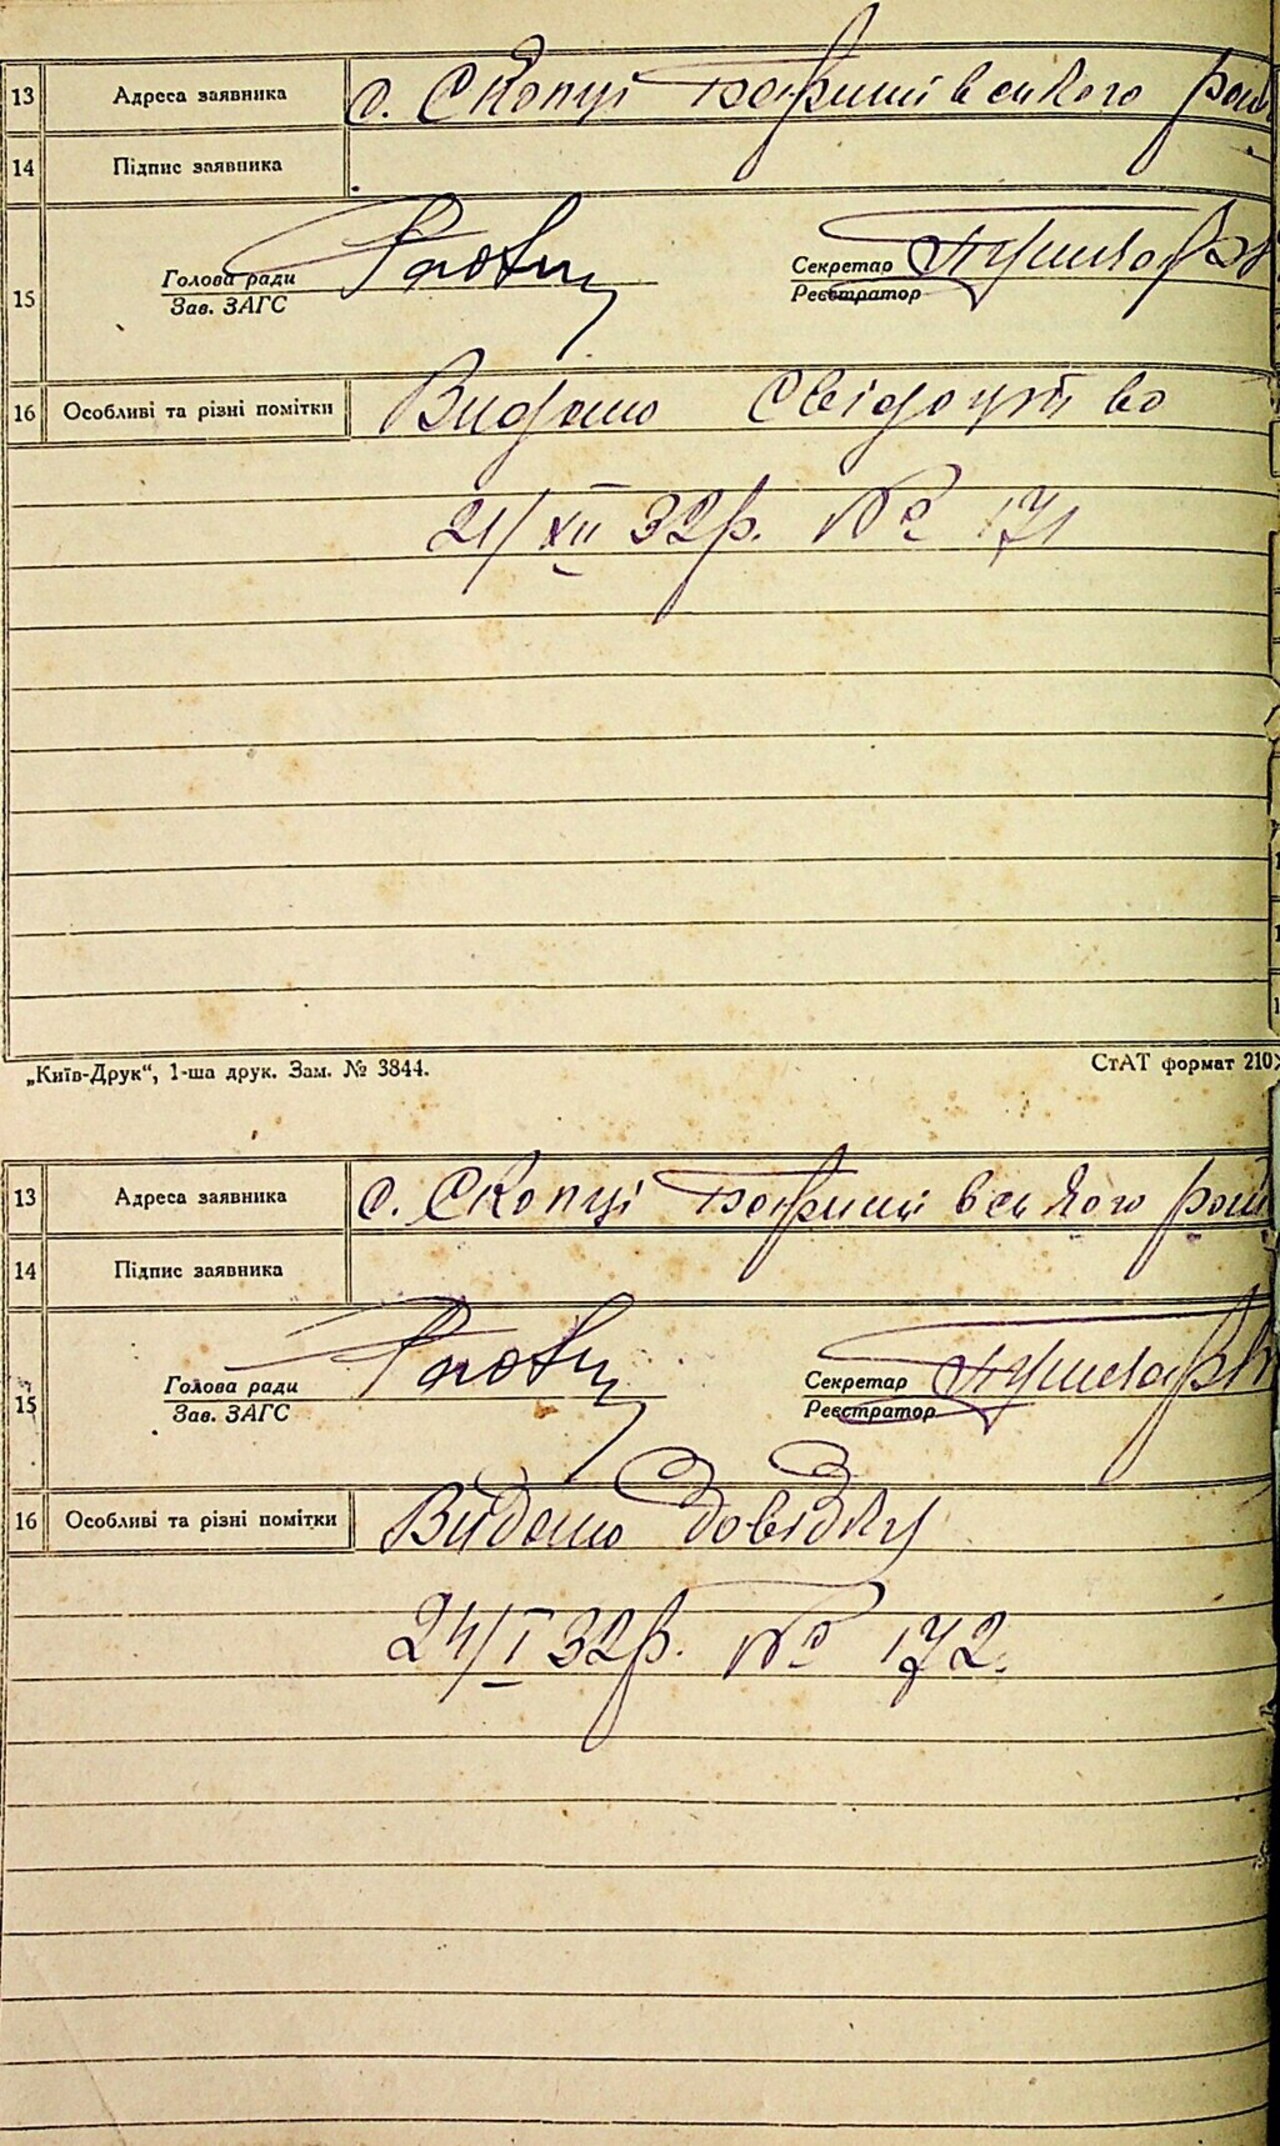 13 Адреса заявника с. Скопці Баришівського рай
14 Підпис заявника
15 Голова ради Секретар
Зав. ЗАГС Реєстратор
16 Особливі та різні помітки Видано свідоцтво
21/XII 32р. № 171
„Київ-Друк“, 1-ша друк. Зам. № 3844. СтАТ формат 210
13 Адреса заявника с. Скопці Баришівського рай
14 Підпис заявника
15 Голова ради Секретар
Зав. ЗАГС Реєстратор
16 Особливі та різні помітки Видано довідку
24/I 32р. № 172.